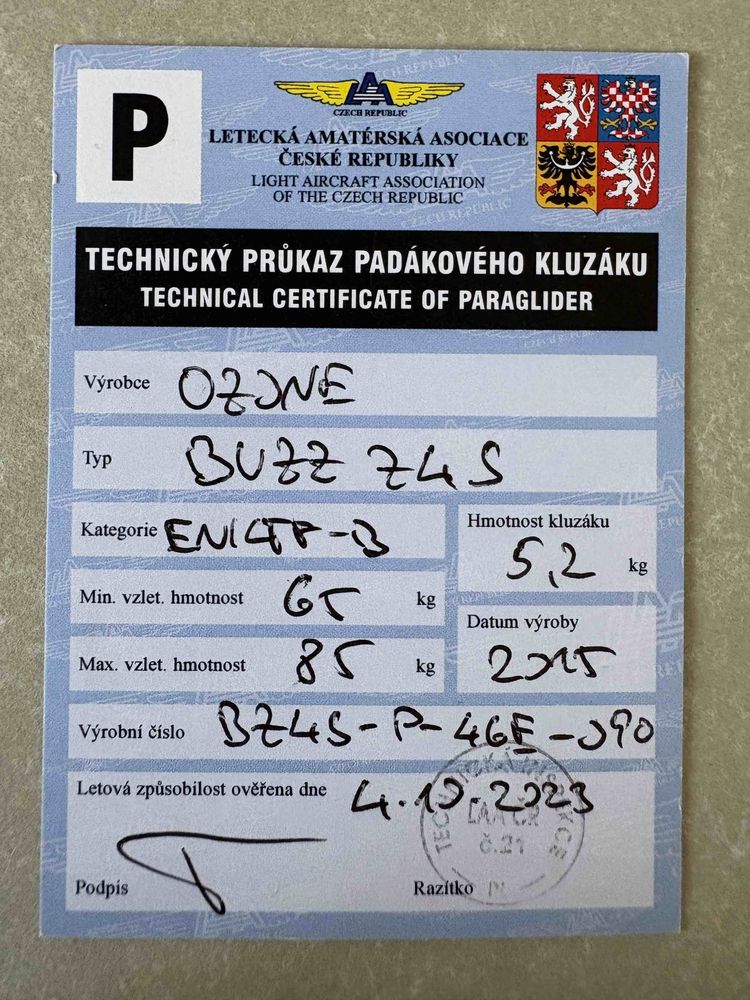 P
CZECH REPUBLIC
LETECKÁ AMATÉRSKÁ ASOCIACE
ČESKÉ REPUBLIKY
LIGHT AIRCRAFT ASSOCIATION
OF THE CZECH REPUBLIC
TECHNICKÝ PRŮKAZ PADÁKOVÉHO KLUZÁKU
TECHNICAL CERTIFICATE OF PARAGLIDER
Výrobce OZONE
Typ BUZZ Z4S
Kategorie EN/LTF-B
Hmotnost kluzáku
5,2 kg
Min. vzlet. hmotnost 65 kg
Datum výroby
2015
Max. vzlet. hmotnost 85 kg
Výrobní číslo BZ4S-P-46E-090
Letová způsobilost ověřena dne 4.10.2023
TECHNICKÁ INSPEKCE
LAA ČR
č.21
Podpis
Razítko